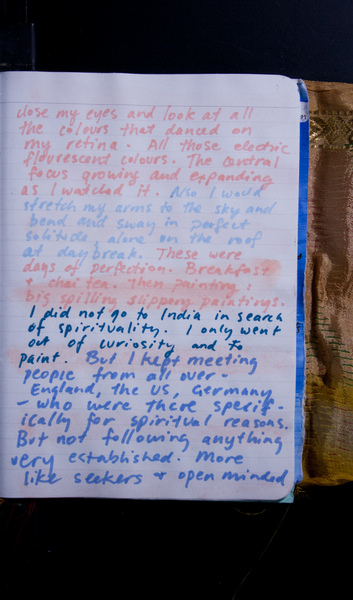 close my eyes and look at all
the colours that danced on
my retina. All those electric
flourescent colours. The central
focus growing and expanding
as I watched it. Also I would
stretch my arms to the sky and
bend and sway in perfect
solitude, alone on the roof
at daybreak. These were
days of perfection. Breakfast
+ chai tea. Then painting:
big spilling slippery paintings.
I did not go to India in search
of spirituality. I only went
out of curiosity and to
paint. But I kept meeting
people from all over -
England, the US, Germany
- who were there specif-
ically for spiritual reasons.
But not following anything
very established. More
like seekers + open minded